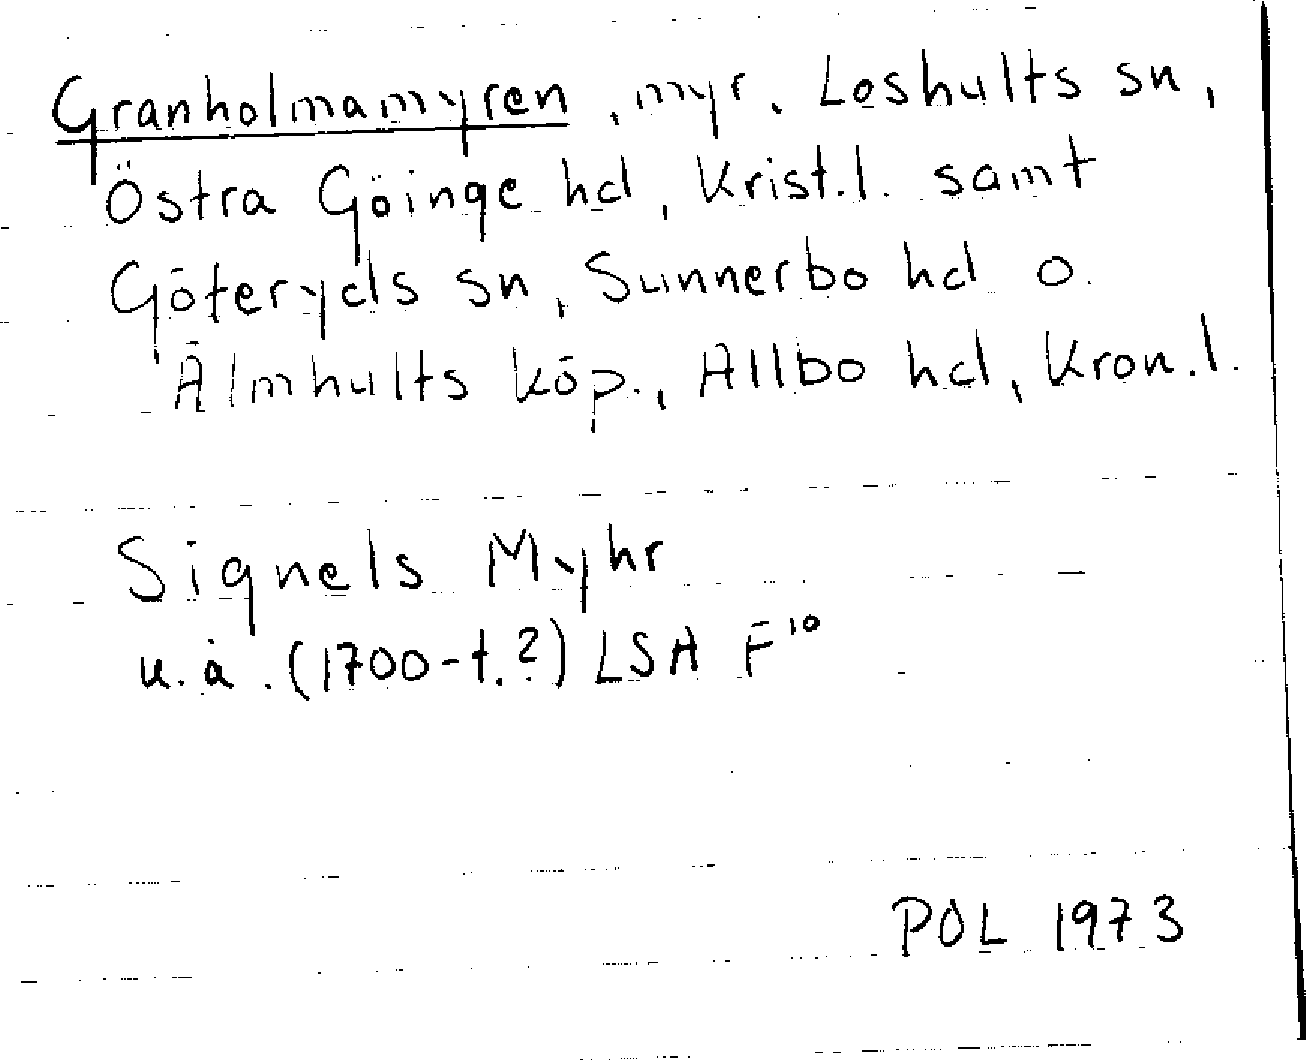 Granholmamyren, myr. Loshults sn,
Östra Göinge hd, Krist.l. samt
Göteryds sn, Sunnerbo hd o.
Älmhults köp., Allbo hd, Kron.l.
Signels Myhr
u.å. (1700-t.?) LSA F10
POL 1973